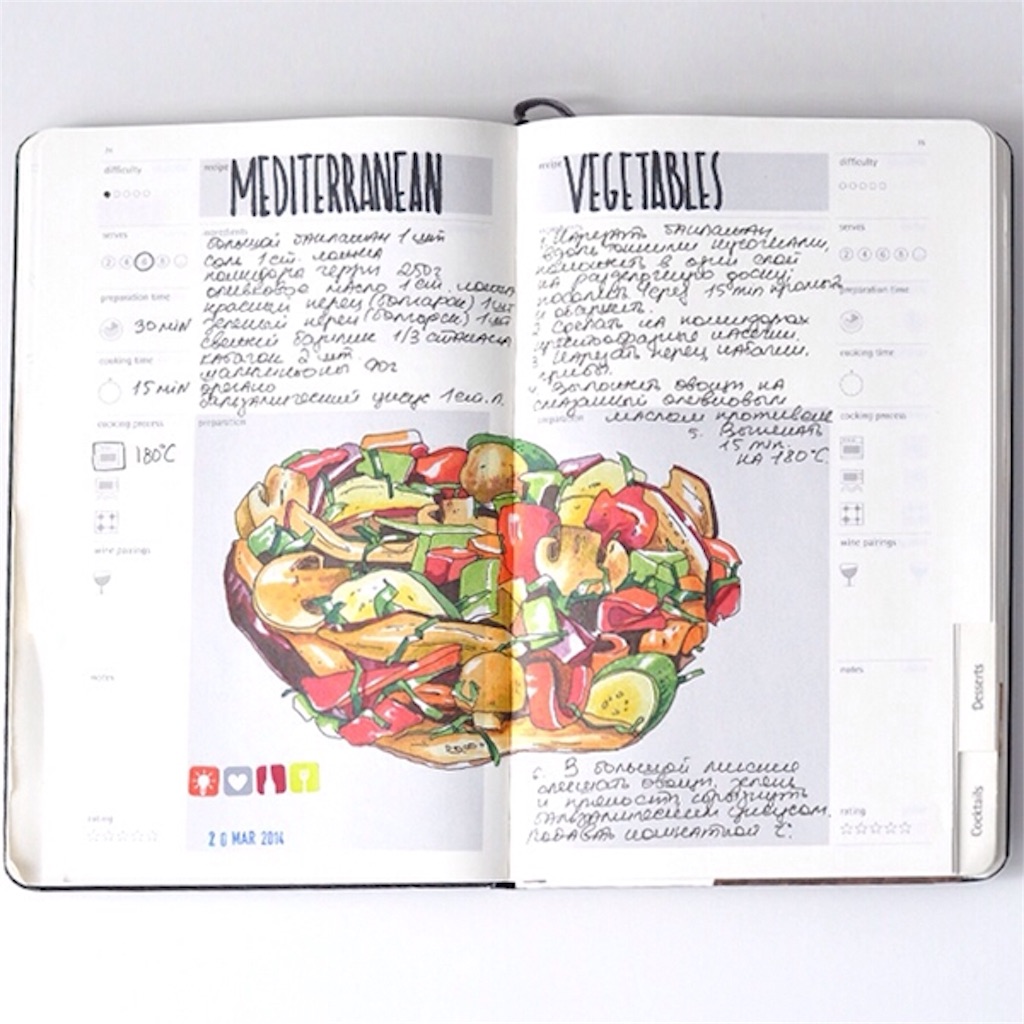 difficulty
recipe MEDITERRANEAN
serves
ingredients
большой баклажан 1 шт
соль 1 ст. ложка
помидоры черри 250г
оливковое масло 1 ст. ложка
preparation time
красный перец (болгарск) 1 шт
30 MIN
зеленый перец (болгарск) 1 шт
свежий базилик 1/3 стакана
cooking time
кабачок 2 шт.
шампиньоны 90г
15 MIN
орегано
бальзамический уксус 1 ст. л.
cooking process
preparation
180°C
wine pairings
notes
rating
20 MAR 2014
recipe VEGETABLES
difficulty
1. Нарезать баклажан
вдоль тонкими кусочками,
serves
положить в один слой
на разделочную доску;
посолить через 15 min промыть
preparation time
и обсушить.
2. Сделать на помидорах
крестообразные насечки.
3. Нарезать перец, кабачки,
cooking time
грибы.
4. Выложить овощи на
смазанный оливковым
маслом противень
cooking process
5. Запекать
15 min.
на 180°C.
wine pairings
notes
6. В большой миске
смешать овощи, зелень
и пряности сбрызнуть
бальзамическим уксусом.
rating
Подавать комнатной t°.
Desserts
Cocktails